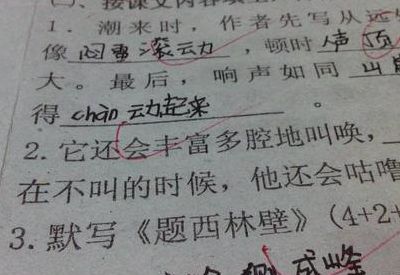 按课文内容填空
1. 潮来时，作者先写从远
像闷雷滚动，顿时人声顶
大。最后，响声如同山
得chàn动起来。
2. 它还会丰富多腔地叫唤，
在不叫的时候，他还会咕噜
3. 默写《题西林壁》（4+2+
成峰